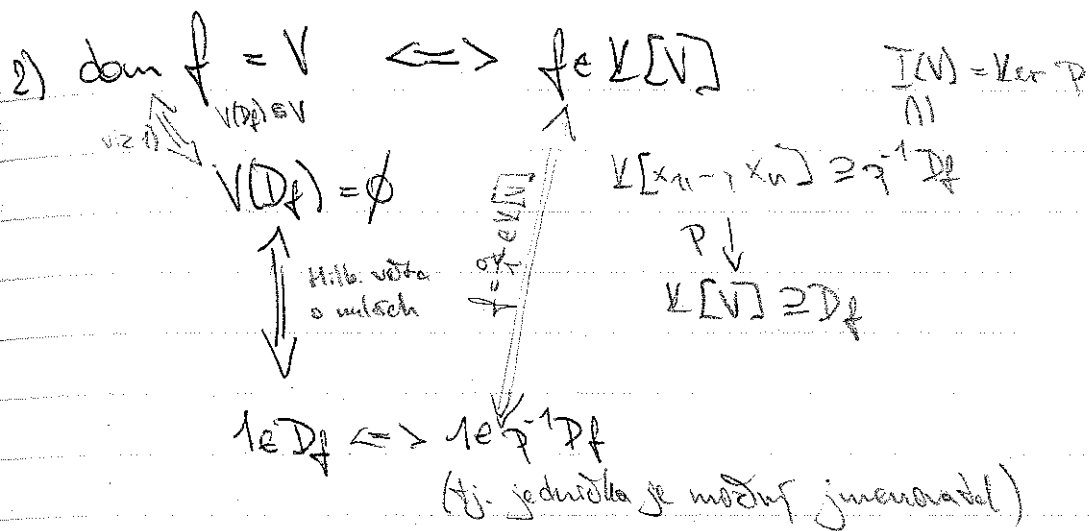 2) dom f = V <=> f ∈ K[V]
I(V) = Ker p
V(D_f) ⊆ V
viz 1)
V(D_f) = ∅
K[x_1, -, x_n] ⊇ p^{-1} D_f
Hilb. věta
o nulách
p ↓
K[V] ⊇ D_f
1 ∈ D_f <=> 1 ∈ p^{-1} D_f
(tj. jednička je možný jmenovatel)